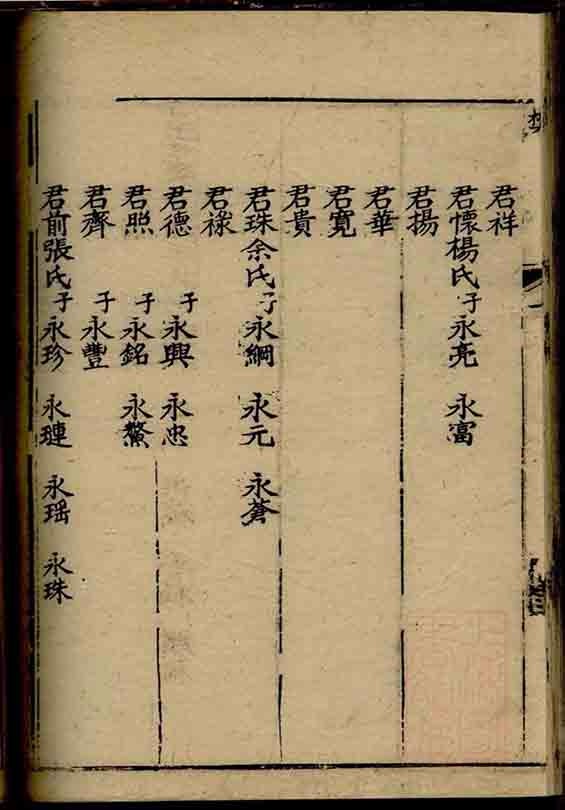 君祥
君懷楊氏子永亮 永富
君揚
君華
君寬
君貴
君珠余氏子永綱 永元 永蒼
君祿
君德 子永興 永忠
君照 子永銘 永鰲
君齊 子永豐
君前張氏子永珍 永璉 永瑶 永珠